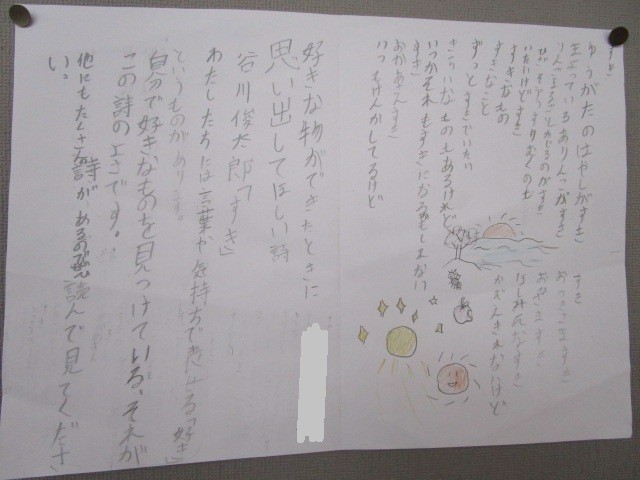 すき
ゆうがたのはやしがすき
まよっているありんこがすき
りんごまるごとかじるのがすき
ひざこぞうすりむくのも
いたいけどすき
すきなもの
すきなこと
ずっとすきでいたい
きらいなものもあるけれど
いつかそれもすきになるかもしれない
おかあさんすき
いつもけんかしてるけど
すき
おつきさますき
おひさますき
ほしはだいすき
かぞえきれないけど
好きな物ができたときに
思い出してほしい詩
谷川俊太郎「すき」
わたしたちには言葉や気持ちで感じる「好き」
というものがあります。
自分で好きなものを見つけている、それが
この詩のよさです。
他にもたくさん詩があるので読んで見てくださ
い。